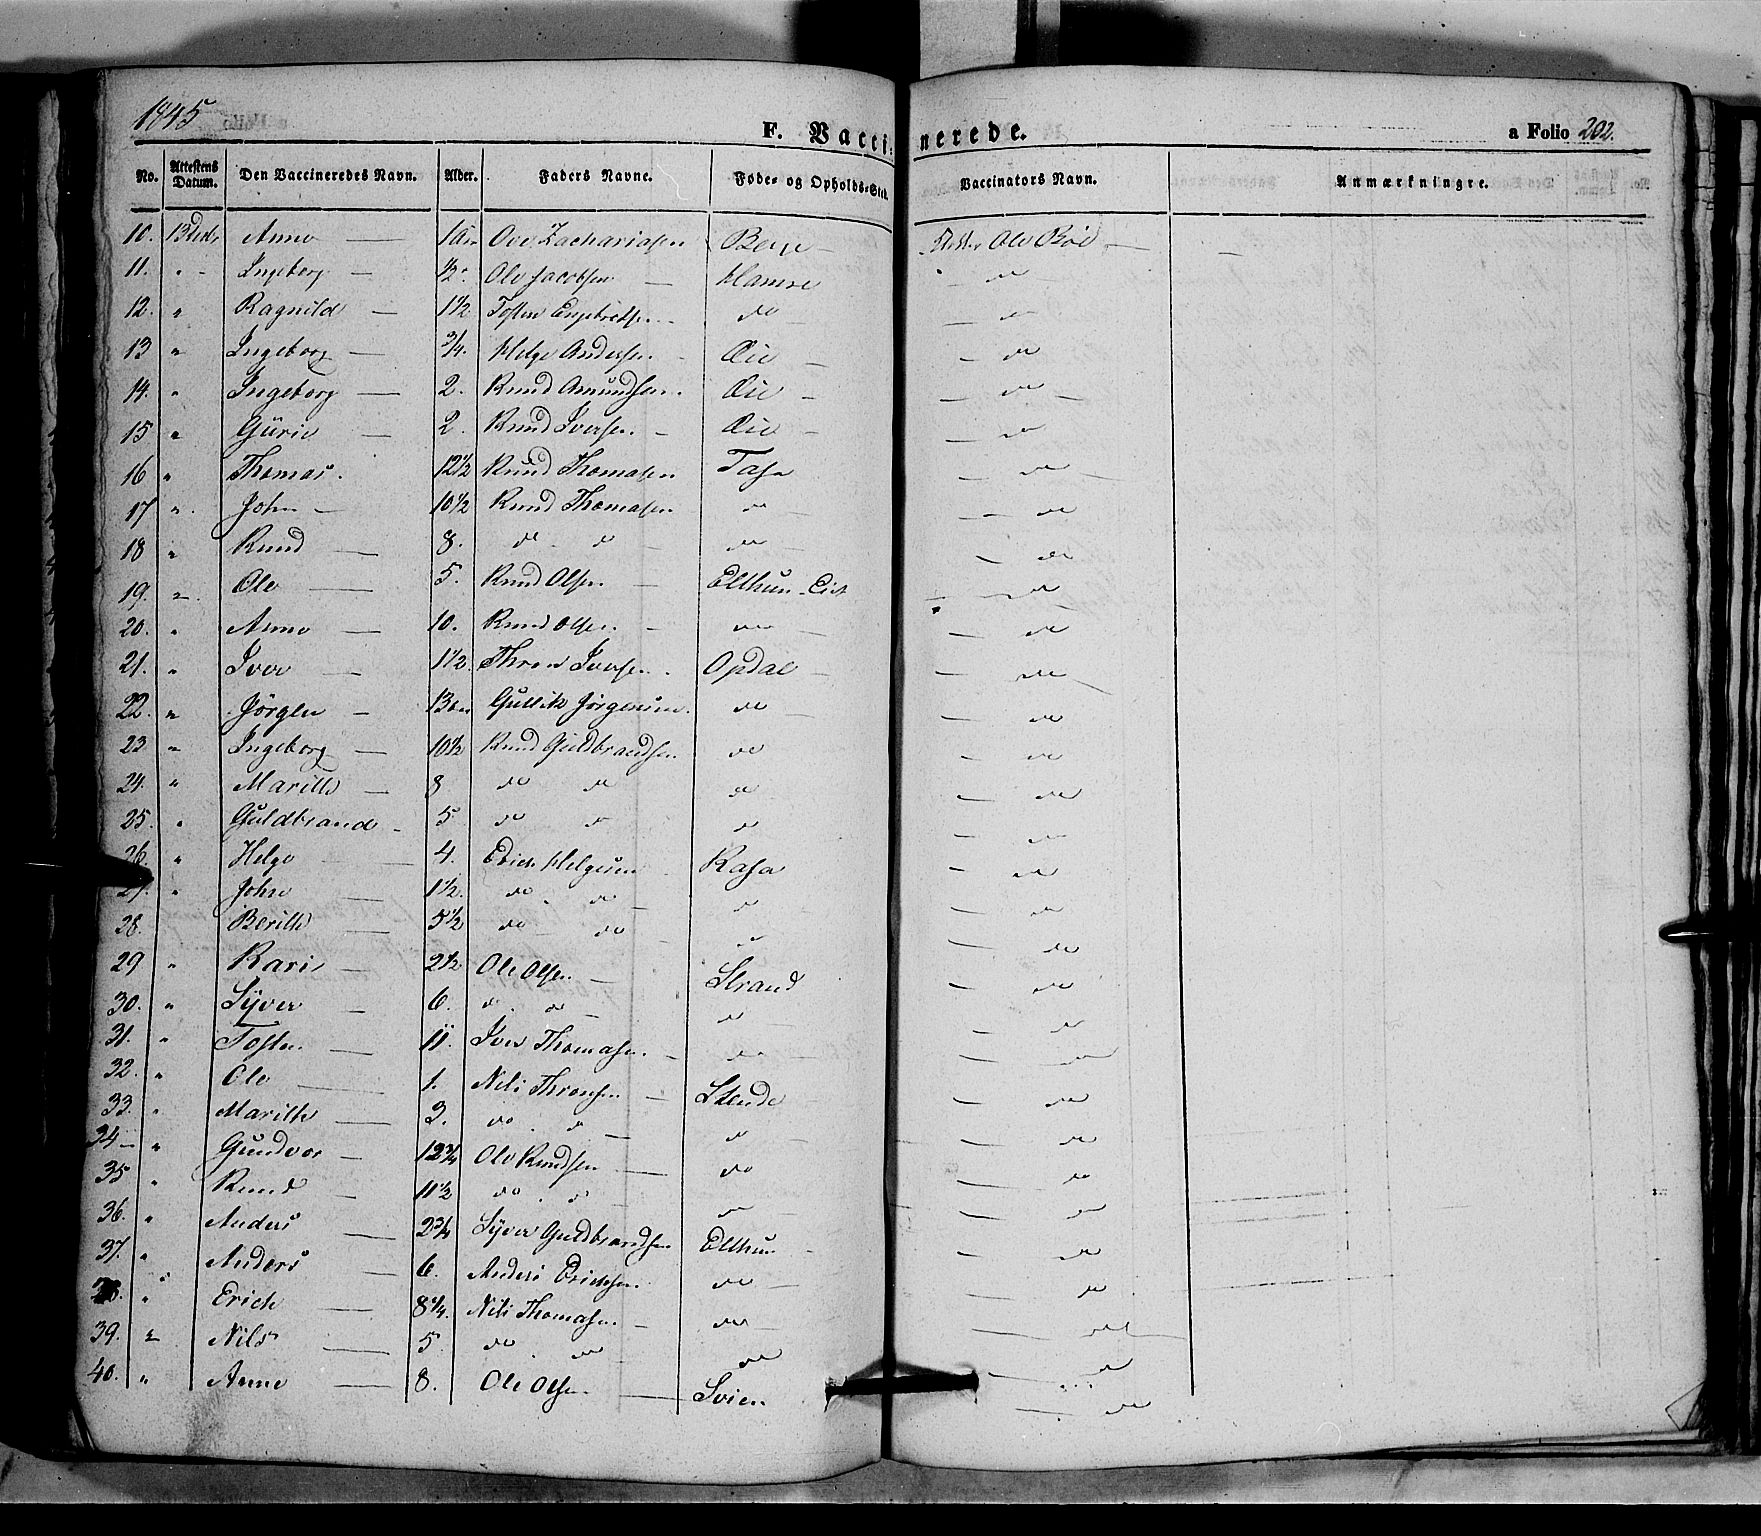 1845
F. Vaccinerede.
a Folio 202.
No. Attestens Datum. Den Vaccineredes Navn. Alder. Faders Navne. Føde- og Opholds-Sted. Vaccinators Navn. Anmærkningre.
10. 13 Anne — Ove Zachariasen Berge — Ole Böe —
11. " Ingeborg — ½ Ole Jacobsen — Hamre — do
12. " Ragnild — 1½ Tosten Engebretsen — do — do
13 " Ingeborg — ¾. Helge Andersen — Øie — do
14. " Ingeborg — 2. Knud Amundsen. Øie — do
15 " Gurie — 2. Knud Iversen — Øie — do
16 " Thomas. 12½ Knud Thomasen Fasa — do
17 " John — 10½ Knud Thomasen do — do
18 " Knud — 8. do do — do — do
19. " Ole — 5. Knud Olsen — Ellhun-Eie — do
20. " Anne — 10. Knud Olsen. — do — do
21. " Iver — 1½. Thron Iversen. Opdal — do
22. " Jörgen — 13 Gullik Jörgensen. do — do
23 " Ingeborg — 10½ Knud Guldbrandsen do — do
24. " Marith — 8 do do do — do
25. " Guldbrand — 5 do do do — do
26. " Helge — 4. Erich Helgesen Rasa — do
27. " John — 1½. do do — do — do
28. Berith — 5½ do do do — do
29 " Kari — 2½ Ole Olsen — Strand — do
30. " Syver — 6. do do — do — do
31. " Tosten. — 11. Iver Thomasen. — do — do
32. " Ole — 1. Nils Thronsen — Skende — do
33. " Marith — 3. do do — do — do
34 — " Gundvor — 12¾ Ole Knudsen — do — do
35 " Knud — 11½ do do do — do
36. " Anders — 2¾ Syver Guldbrandsen Ellhun — do
37. " Anders — 6. Anders Erichsen. do — do
38. " Erich — 8¼. Nils Thomasen — do — do
39. " Nils — 5. do do do — do
40. " Anne — 8. Ole Olsen — Svien — do